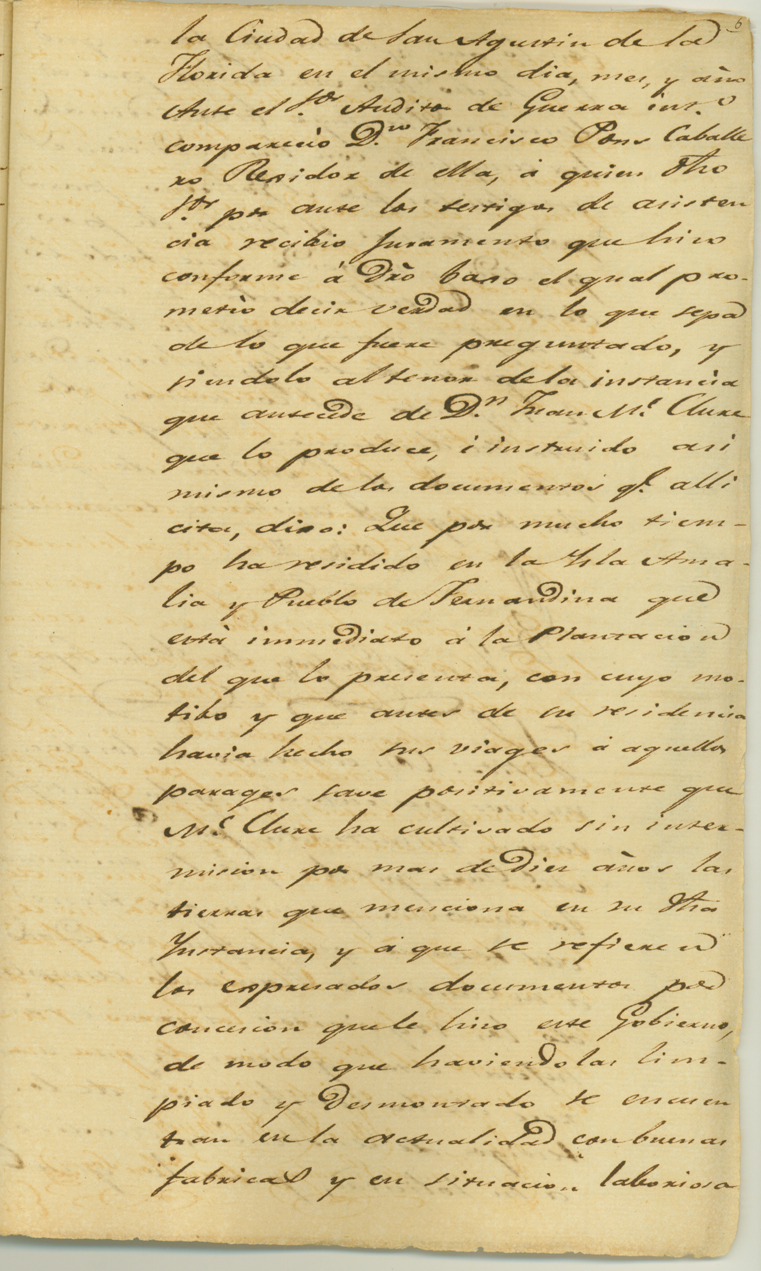 6
la Ciudad de San Agustin de la
Florida en el mismo dia, mes, y año
Ante el S.or Auditor de Guerra int.o
comparecio D.n Francisco Pons Caballe
ro Regidor de ella, á quien dho
S.or por ante los testigos de asisten
cia recibio Juramento que hizo
conforme á dro baxo el qual pro-
metió decir verdad en lo que sepa
de lo que fuere preguntado, y
siendolo al tenor de la instancia
que antecede de D.n Juan M.c Clure
que lo produce, i instruido asi
mismo de los documentos q.e alli
cita, dixo: Que por mucho tiem-
po ha residido en la Ysla Ama-
lia y Pueblo de Fernandina que
está immediato á la Plantacion
del que lo presenta, con cuyo mo-
tibo y que antes de su residencia
havia hecho sus viages á aquellos
parages save positivamente que
M.c Clure ha cultivado sin inter-
mision por mas de Diez años las
tierras que menciona en su dha
Instancia, y á que se refieren
los expresados documentos por
concesion que le hizo este Gobierno,
de modo que haviendolas lim-
piado y Desmontado se encuen
tran en la actualidad con buenas
fabricas y en situacion laboriosa